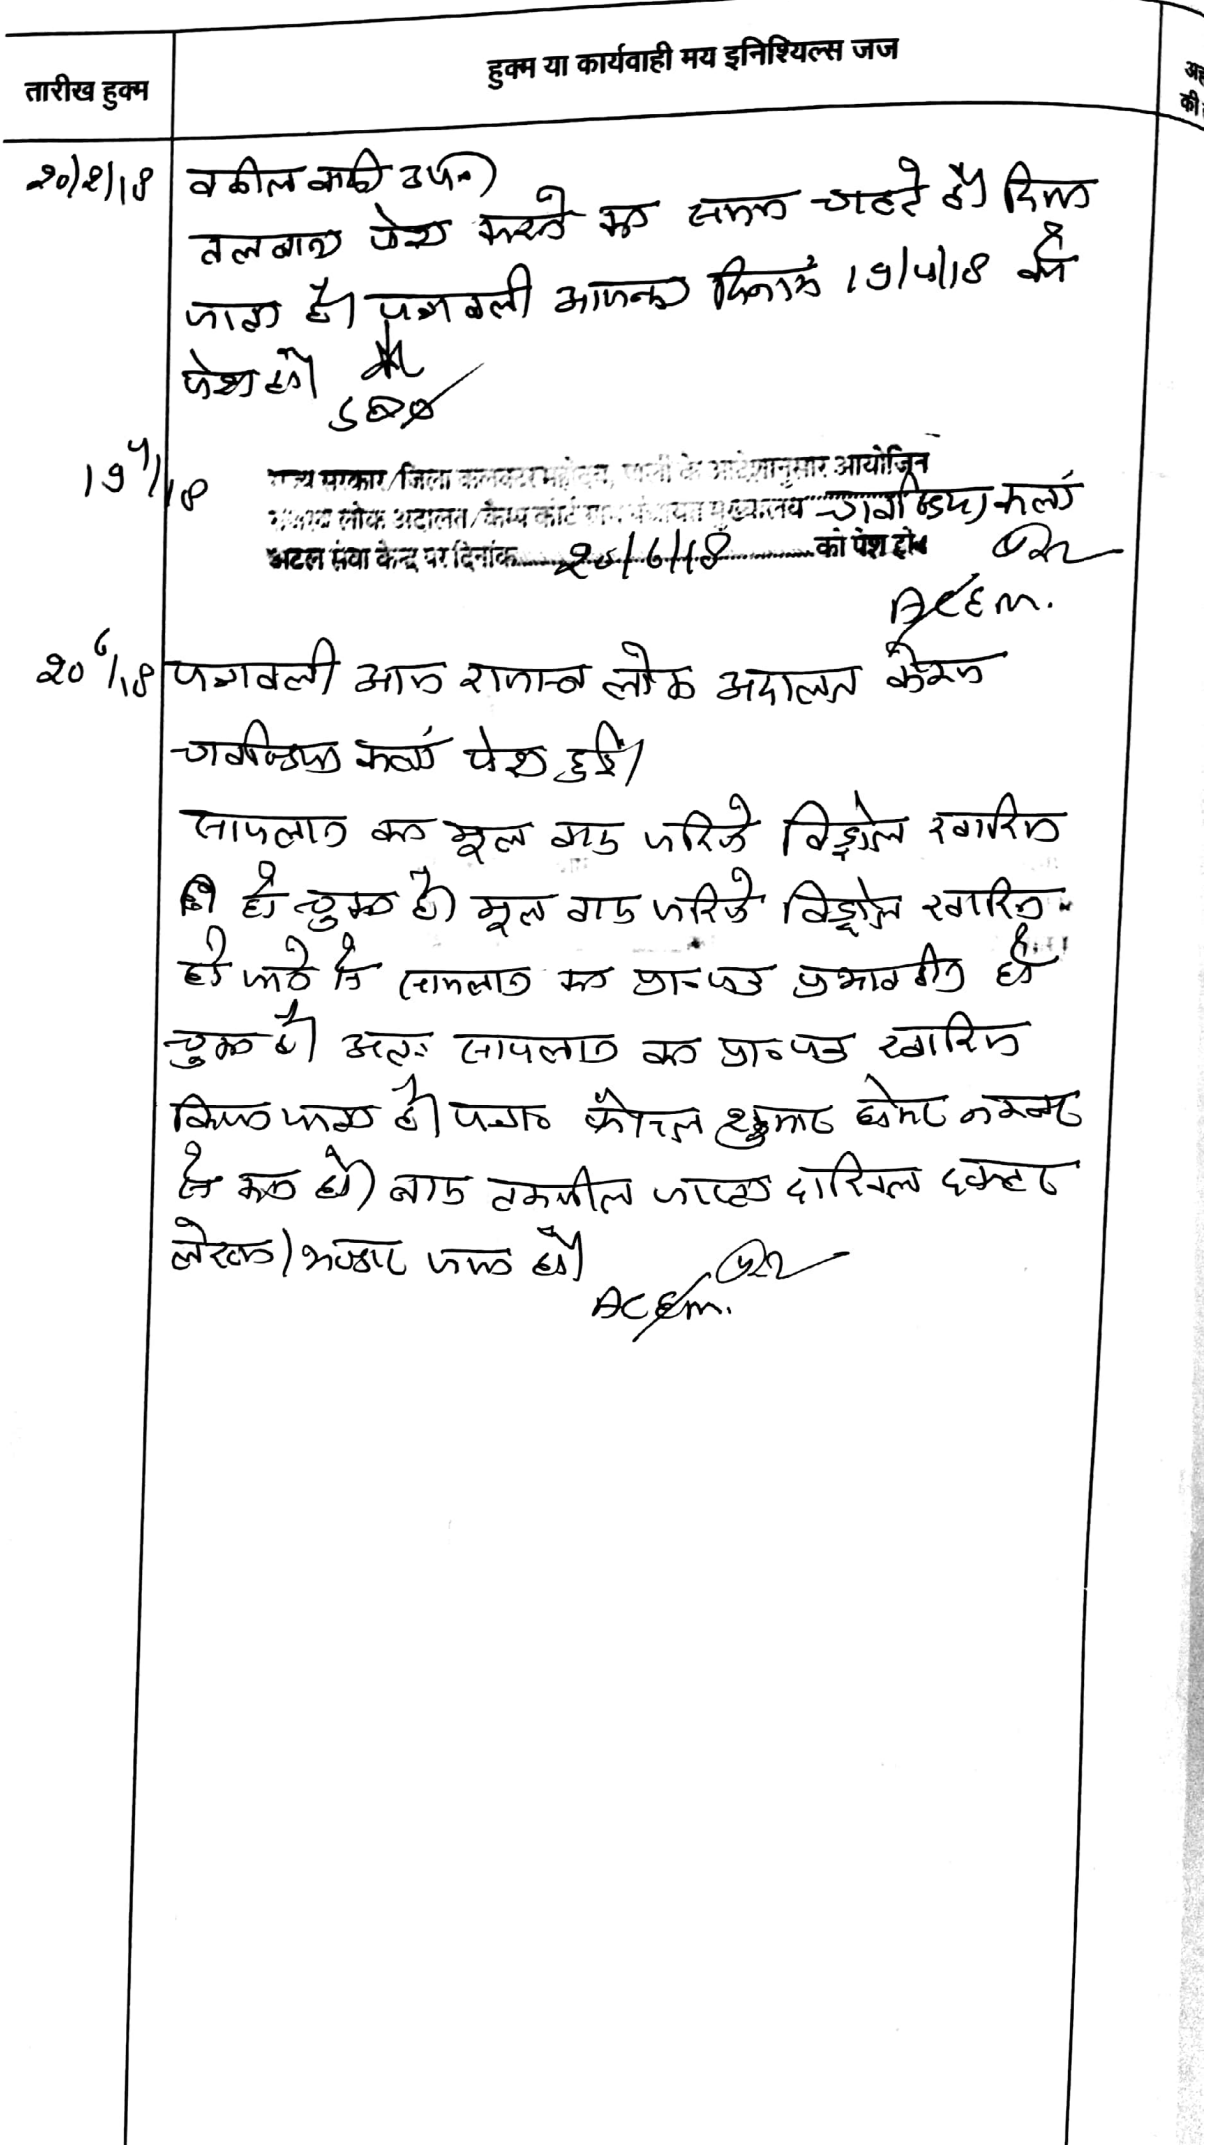 तारीख हुक्म
हुक्म या कार्यवाही मय इनिश्यिल्स जज
अह
की
20/2/18
वकील वादी उप०
तलबाना पेश करने का समय चाहते है। दिया
जाता है। पत्रावली आयन्दा दिनांक 19/4/18 को
पेश हो।
SDO
19/4/18
राज्य सरकार/जिला कलक्टर महोदय, पाली के आदेशानुसार आयोजित
लोक अदालत/केम्प कोर्ट ग्राम पंचायत मुख्यालय चावण्डिया कलां
अटल सेवा केन्द्र पर दिनांक 20/6/18 को पेश हो।
ACEM.
20/6/18
पत्रावली आज राजस्व लोक अदालत केम्प
चावण्डिया कलां पेश हुई।
सायलान का मूल वाद जरिये विड्रोल खारिज
हो चुका है। मूल वाद जरिये विड्रोल खारिज
हो जाने से सायलान का प्रा०पत्र प्रभावहीन हो
चुका है। अतः सायलान का प्रा०पत्र खारिज
किया जाता है। पत्रा० फैसल शुमार होकर नम्बर
से कम हो। बाद तकमील जाब्ता दाखिल दफ्तर
लेखा भण्डार जमा हो।
ACEM.